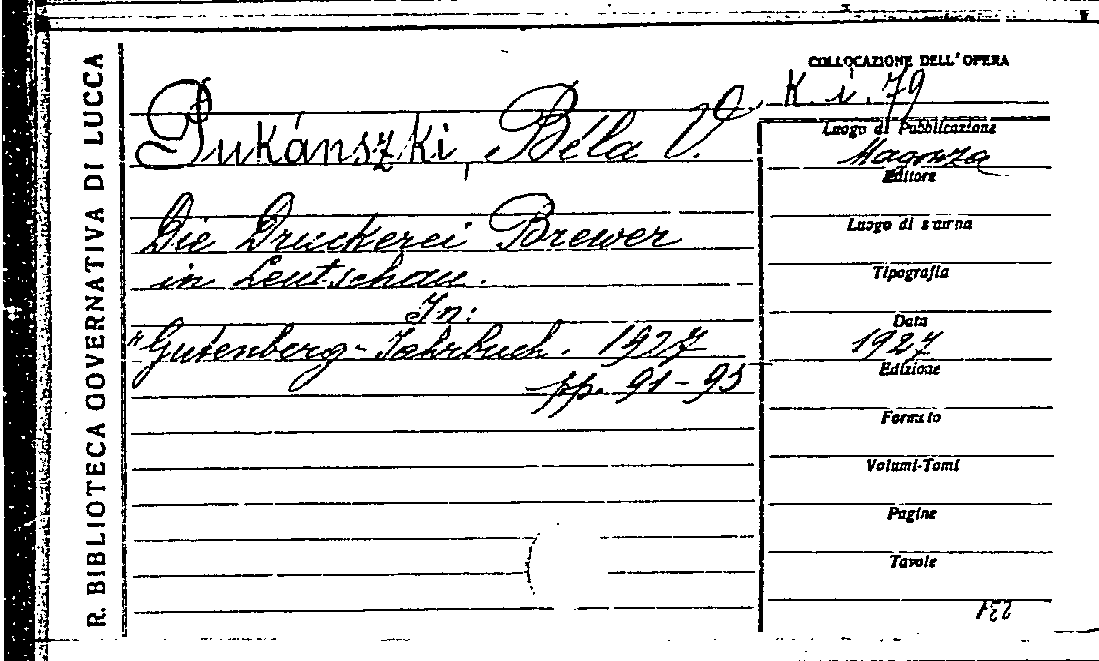 R. BIBLIOTECA GOVERNATIVA DI LUCCA
COLLOCAZIONE DELL'OPERA
K. i. 79
Pukánszki, Béla V.
Die Druckerei Brewer
in Leutschau.
In:
"Gutenberg-Jahrbuch. 1927
pp. 91-95
Luogo di Pubblicazione
Magonza
Editore
Luogo di stampa
Tipografia
Data
1927
Edizione
Formato
Volumi-Tomi
Pagine
Tavole